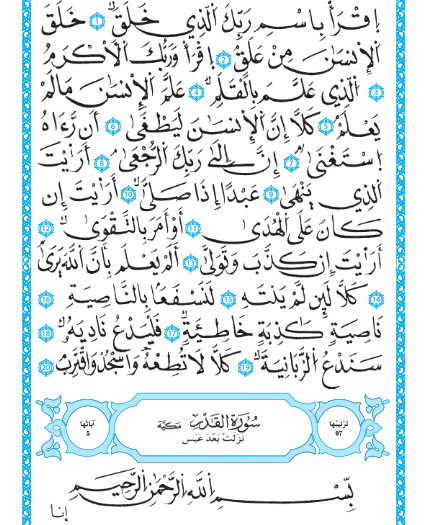 اِقْرَأْ بِاسْمِ رَبِّكَ اَلذِي خَلَقَ 1 خَلَقَ
اَلْإِنسَٰنَ مِنْ عَلَقٍ 2 اِقْرَأْ وَرَبُّكَ اَلْأَكْرَمُ
3 اُلذِي عَلَّمَ بِالْقَلَمِ 4 عَلَّمَ اَلْإِنسَٰنَ مَا لَمْ
يَعْلَمْ 5 كَلَّا إِنَّ اَلْإِنسَٰنَ لَيَطْغَىٰ 6 أَن رَّءَاهُ
اُسْتَغْنَىٰ 7 إِنَّ إِلَىٰ رَبِّكَ اَلرُّجْعَىٰ 8 أَرَٰيْتَ
اَلذِي يَنْهَىٰ 9 عَبْدًا إِذَا صَلَّىٰ 10 أَرَٰيْتَ إِن
كَانَ عَلَى اَلْهُدَىٰ 11 أَوْ أَمَرَ بِالتَّقْوَىٰ 12
أَرَٰيْتَ إِن كَذَّبَ وَتَوَلَّىٰ 13 أَلَمْ يَعْلَم بِأَنَّ اَللَّهَ يَرَىٰ
14 كَلَّا لَئِن لَّمْ يَنتَهِ 15 لَنَسْفَعًا بِالنَّاصِيَةِ 16
نَاصِيَةٍ كَٰذِبَةٍ خَاطِئَةٍ 17 فَلْيَدْعُ نَادِيَهُۥ 18
سَنَدْعُ اُلزَّبَانِيَةَ 19 كَلَّا لَا تُطِعْهُ وَاسْجُدْ وَاقْتَرِب 20
تَرْتِيبُهَا 97
سُورَةُ اَلْقَدْرِ مَكِّيَّة
نَزَلَتْ بَعْدَ عَبَسَ
آيَاتُهَا 5
بِسْمِ اِللَّهِ اِلرَّحْمَٰنِ اِلرَّحِيمِ
إنا